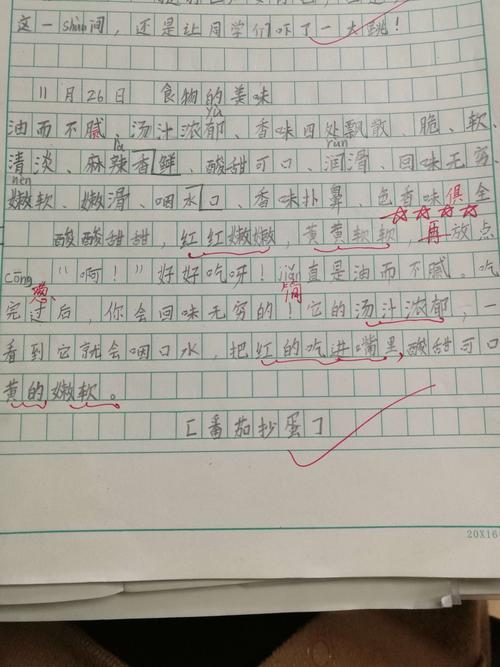 这一shùn间，还是让同学们吓了一大跳！
11月26日 食物的美味
yù
油而不腻、汤汁浓郁、香味四处飘散、脆、软、
là rùn
清淡、麻辣香鲜、酸甜可口、润滑、回味无穷
nèn
嫩软、嫩滑、咽水口、香味扑鼻、色香味俱全
酸酸甜甜，红红嫩嫩，黄黄软软，再放点
cōng "啊！"好好吃呀！jiǎn直是油而不腻。吃
葱、 简
完过后，你会回味无穷的！它的汤汁浓郁，一
看到它就会咽口水，把红的吃进嘴里，酸甜可口
黄的嫩软。
［番茄抄蛋］
20X16